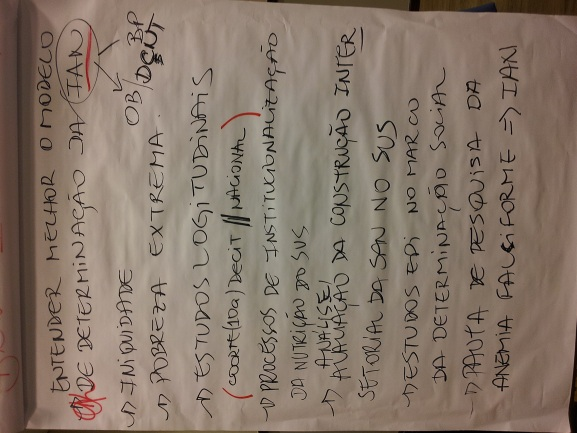 ENTENDER MELHOR O MODELO
DE DETERMINAÇÃO DA IAN
BP
OB/DCNT
→ INIQUIDADE
→ POBREZA EXTREMA.
→ ESTUDOS LOGITUDINAIS
(COORTE(10a) DECIT // NACIONAL)
→ PROCESSOS DE INSTITUCIONALIZAÇÃO
DA NUTRIÇÃO DO SUS
ANÁLISE/
→ AVALIAÇÃO DA CONSTRUÇÃO INTER
SETORIAL DA SAN NO SUS
→ ESTUDOS EPI NO MARCO
DA DETERMINAÇÃO SOCIAL
→ PAUTA DE PESQUISA DA
ANEMIA FALCIFORME => IAN